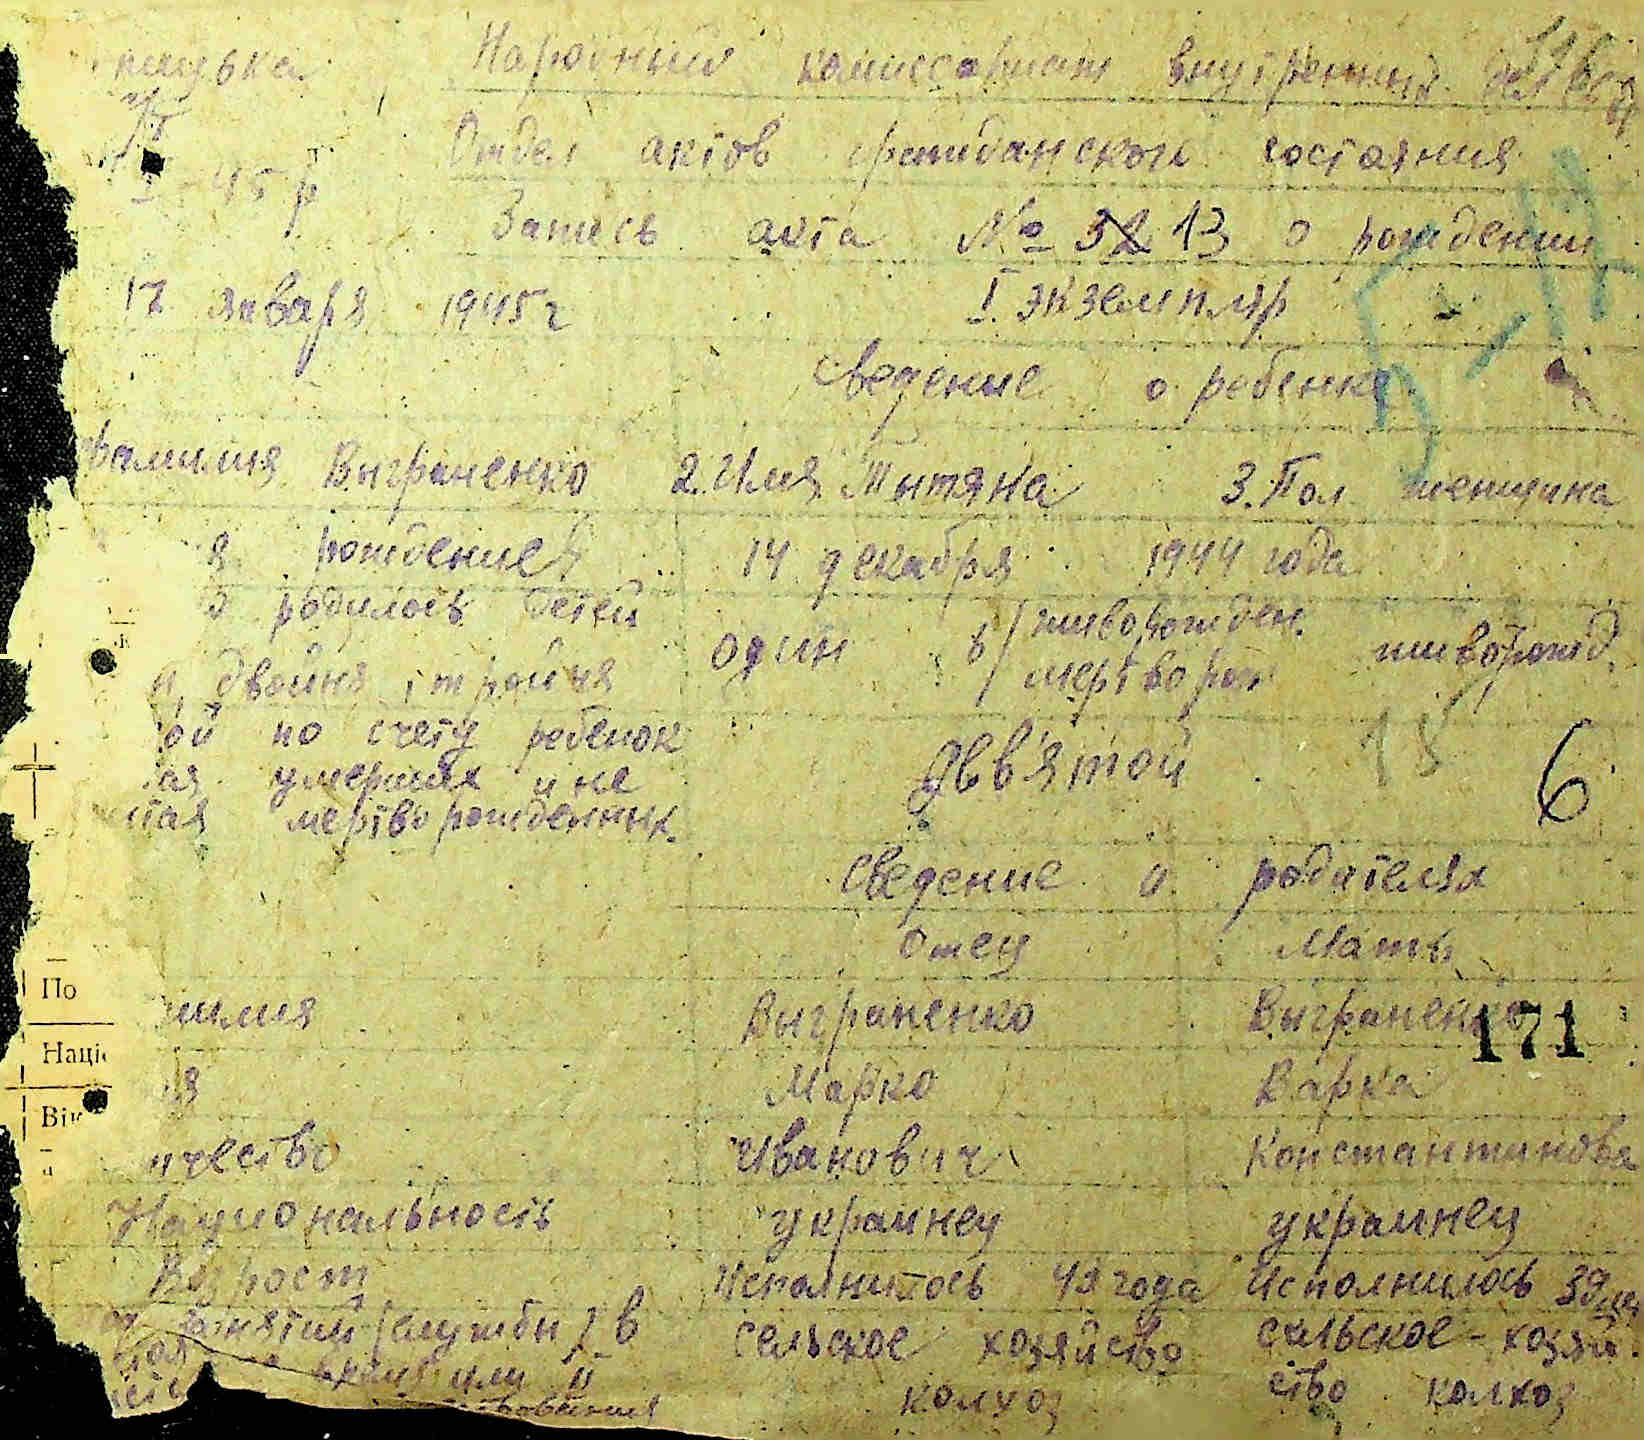 Народный комиссариат внутренний дел
Отдел актов гражданского состояния
I - 45 р
Запись акта № 32 13 о рождении
17 января 1945 г
I экземпляр
Сведение о ребенке
фамилия Выграненко 2. Имя Тытяна 3. Пол женщина
я рождение 14 декабря 1944 года
о родилось детей
один в/ живорожден. живорожд.
мертворож
и, двойня, тройня
ой по счету ребенок
дев'ятой
18
6
ая умерших и не
итая мертворожденных.
Сведение о родителях
Отец Мать
По
милия Выграненко Выграненко
171
Наці
я Марко Варка
Вік
ичество Иванович Константиновна
Национальность украинец украинец
Возраст Исполнилось 42 года Исполнилось 39 лет
занятий (службы) в сельское хозяйство сельское-хозяй
или
колхоз ство колхоз